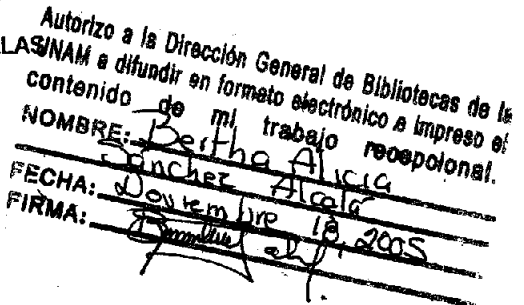 Autorizo a la Dirección General de Bibliotecas de la
UNAM a difundir en formato electrónico e impreso el
contenido de mi trabajo recepcional.
NOMBRE: Bertha Alicia
Sánchez Alcalá
FECHA: 18, 2005
FIRMA: